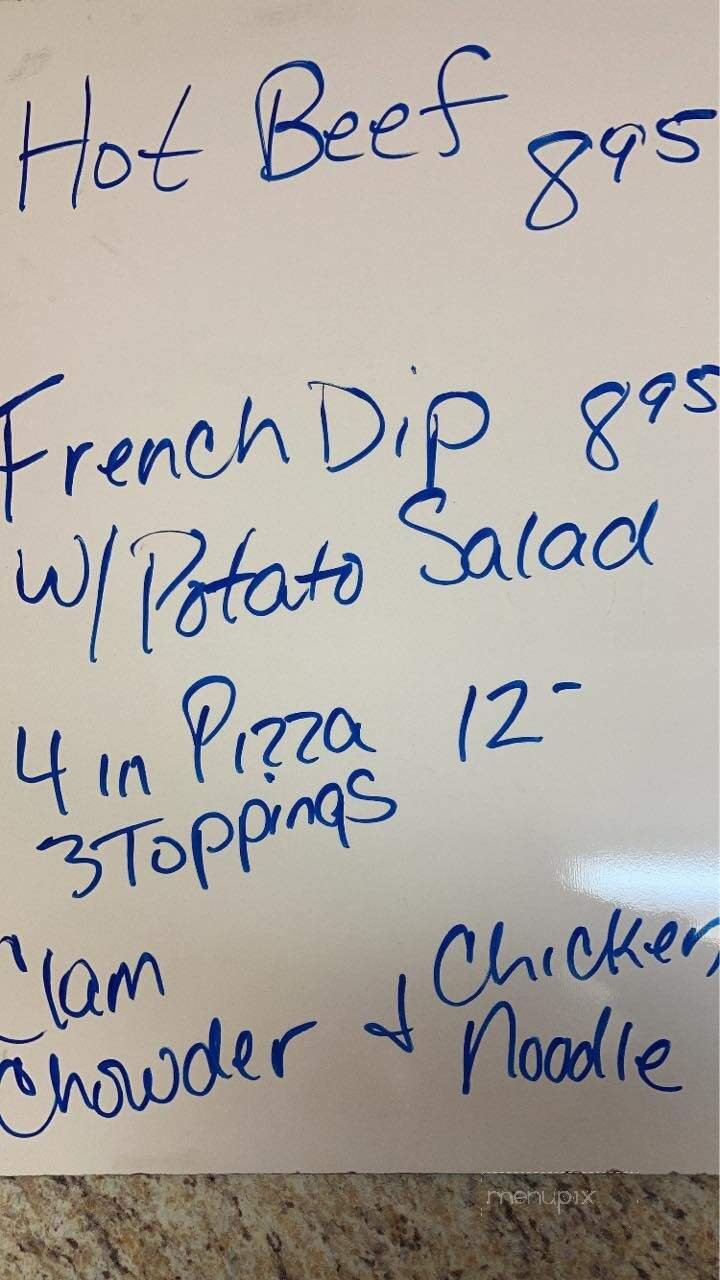 Hot Beef 8 95
French Dip 8 95
W/ Potato Salad
4 in Pizza 12-
3 Toppings
Clam
Chowder & Chicken
Noodle
menupix